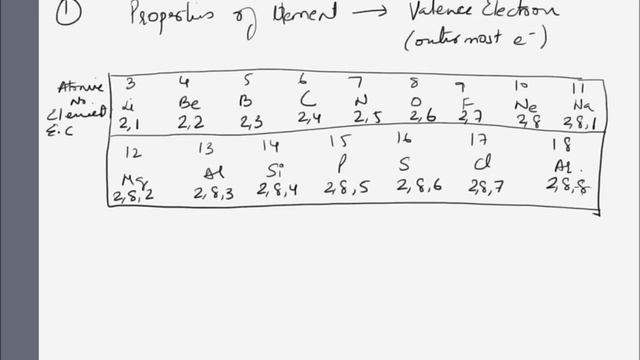 ① Properties of Element → Valence Electron
(outermost e⁻)
Atomic No. 3 4 5 6 7 8 9 10 11
Element Li Be B C N O F Ne Na
E.C 2,1 2,2 2,3 2,4 2,5 2,6 2,7 2,8 2,8,1
12 13 14 15 16 17 18
Mg Al Si P S Cl Ar.
2,8,2 2,8,3 2,8,4 2,8,5 2,8,6 2,8,7 2,8,8